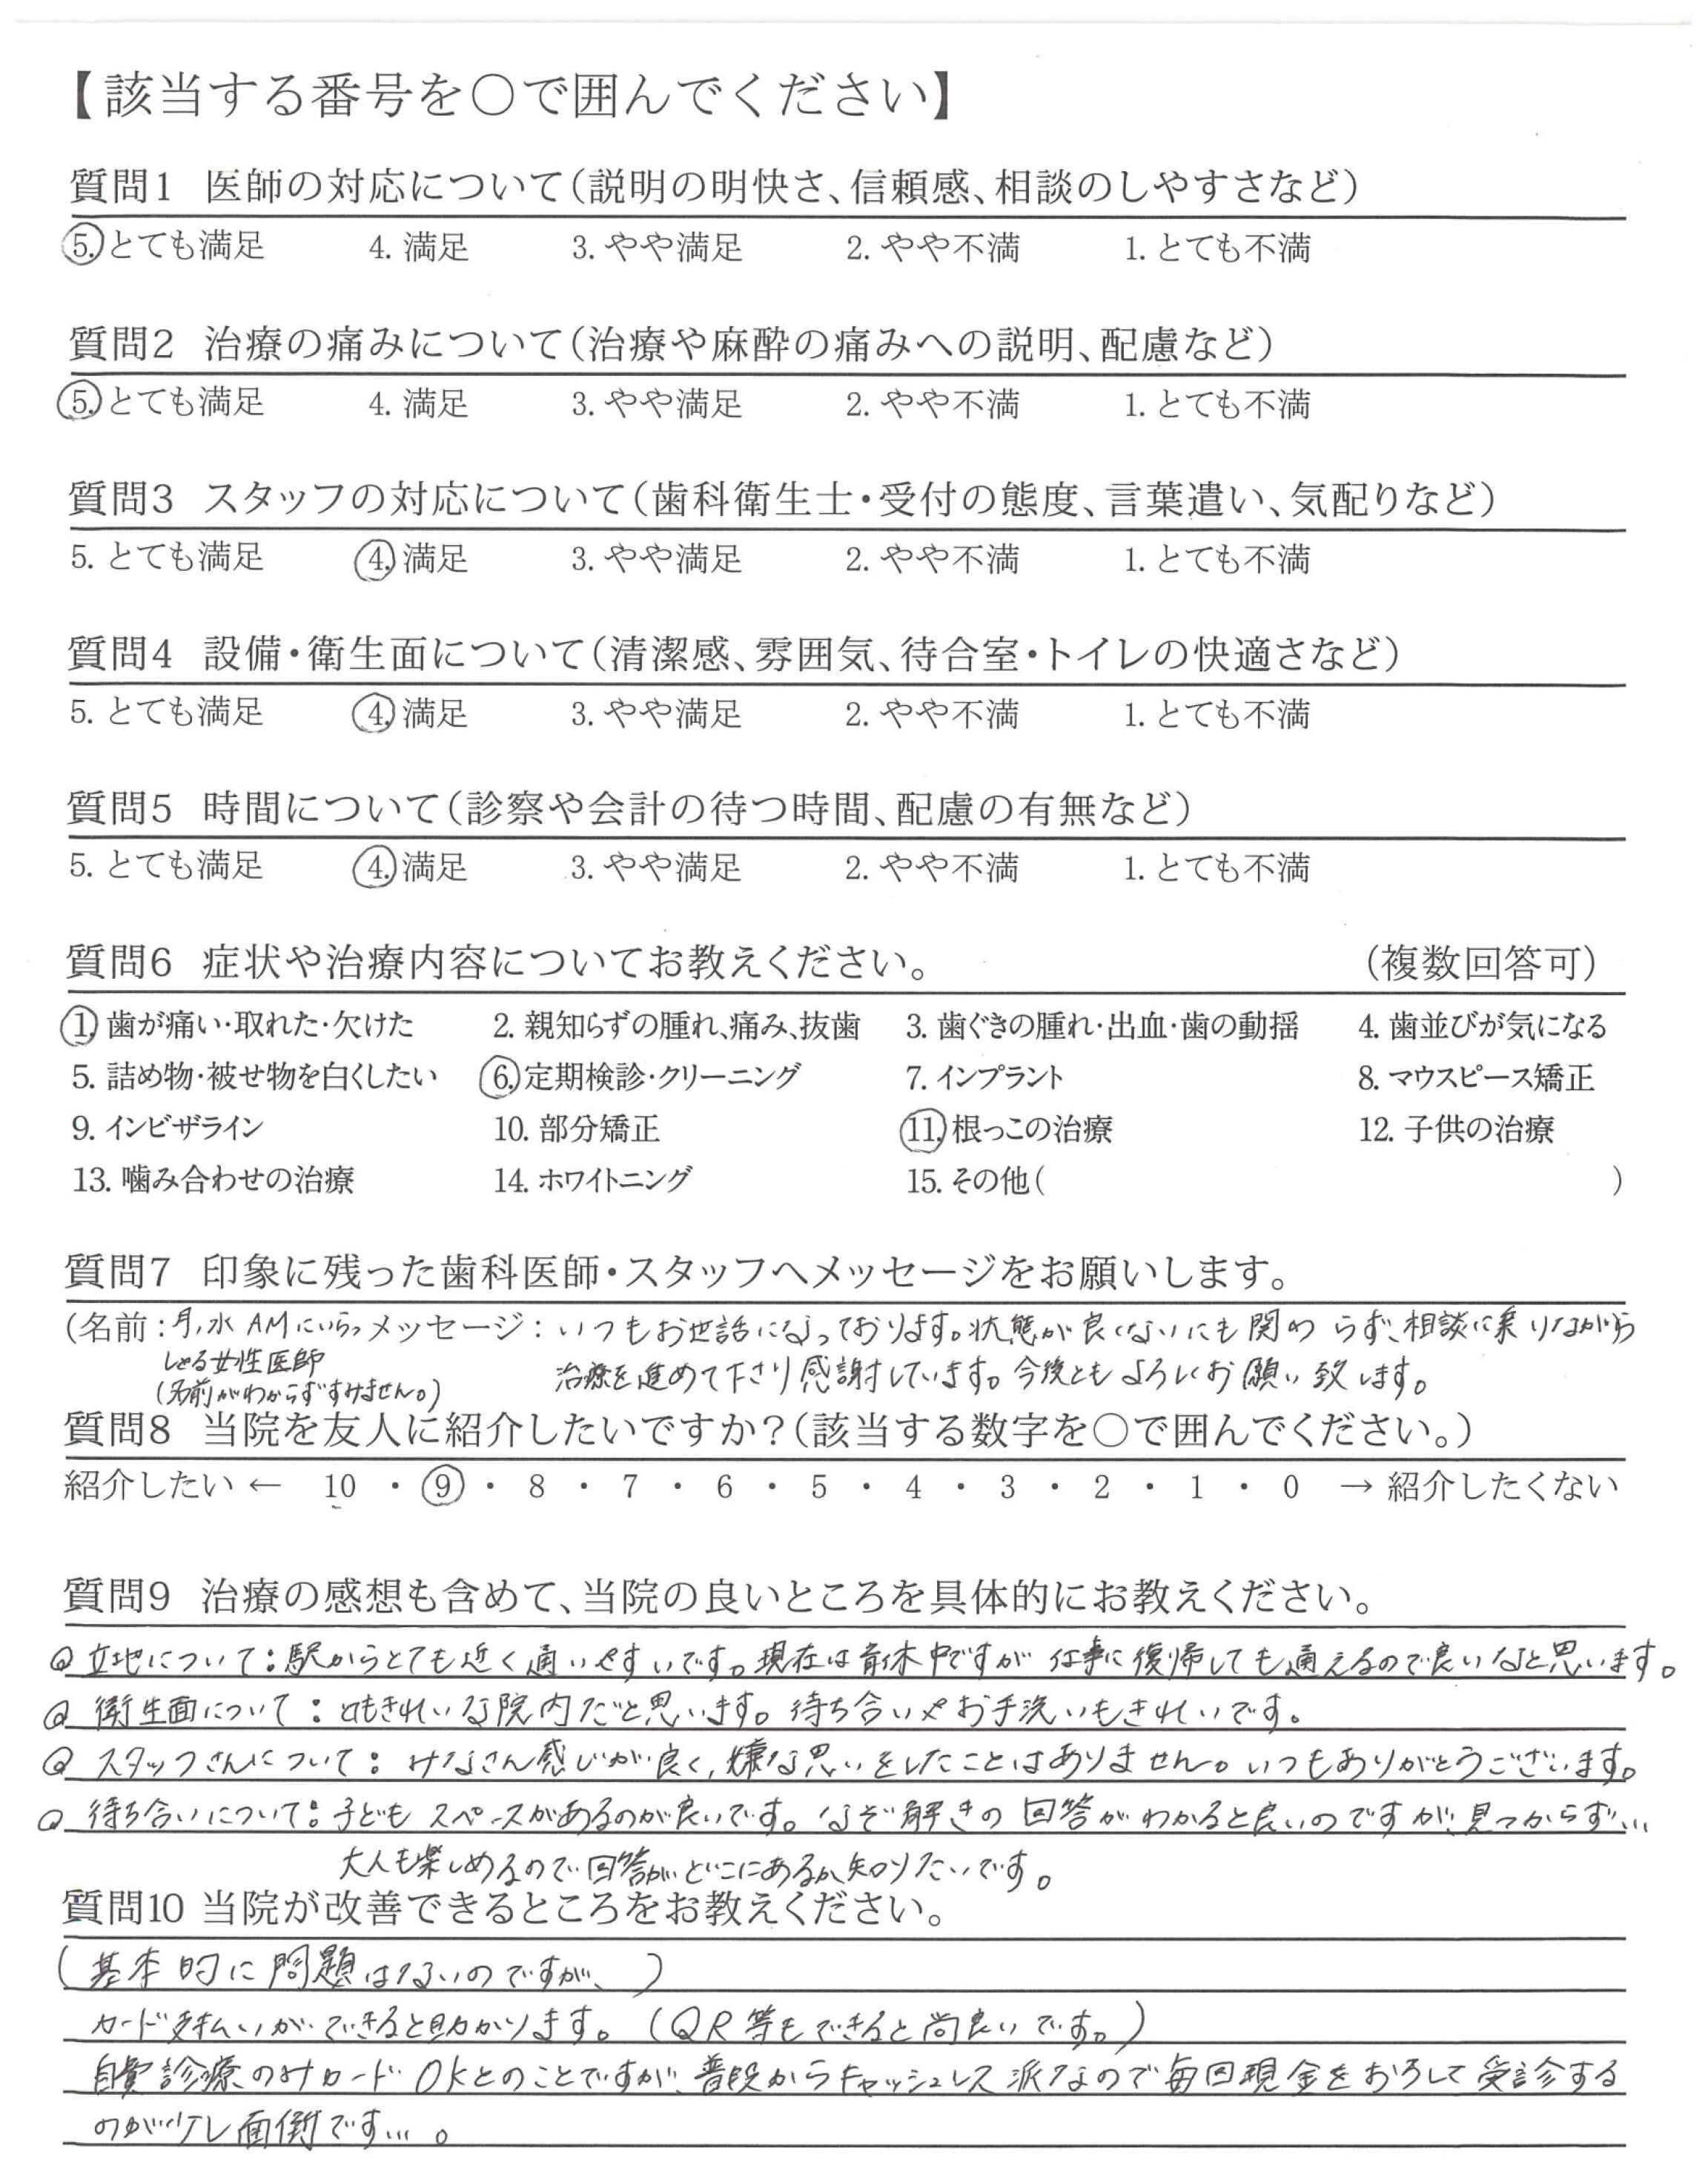 【該当する番号を〇で囲んでください】
質問1 医師の対応について(説明の明快さ、信頼感、相談のしやすさなど)
5. とても満足 4. 満足 3. やや満足 2. やや不満 1. とても不満
質問2 治療の痛みについて(治療や麻酔の痛みへの説明、配慮など)
5. とても満足 4. 満足 3. やや満足 2. やや不満 1. とても不満
質問3 スタッフの対応について(歯科衛生士・受付の態度、言葉遣い、気配りなど)
5. とても満足 4. 満足 3. やや満足 2. やや不満 1. とても不満
質問4 設備・衛生面について(清潔感、雰囲気、待合室・トイレの快適さなど)
5. とても満足 4. 満足 3. やや満足 2. やや不満 1. とても不満
質問5 時間について(診察や会計の待つ時間、配慮の有無など)
5. とても満足 4. 満足 3. やや満足 2. やや不満 1. とても不満
質問6 症状や治療内容についてお教えください。 (複数回答可)
1. 歯が痛い・取れた・欠けた 2. 親知らずの腫れ、痛み、抜歯 3. 歯ぐきの腫れ・出血・歯の動揺 4. 歯並びが気になる
5. 詰め物・被せ物を白くしたい 6. 定期検診・クリーニング 7. インプラント 8. マウスピース矯正
9. インビザライン 10. 部分矯正 11. 根っこの治療 12. 子供の治療
13. 噛み合わせの治療 14. ホワイトニング 15. その他( )
質問7 印象に残った歯科医師・スタッフへメッセージをお願いします。
(名前:月,水 AMにいらっ メッセージ:いつもお世話になっております。状態が良くないにも関わらず、相談に乗りながら
しゃる女性医師 治療を進めて下さり感謝しています。今後ともよろしくお願い致します。
(名前がわからずすみません。)
質問8 当院を友人に紹介したいですか?(該当する数字を〇で囲んでください。)
紹介したい ← 10 ・ 9 ・ 8 ・ 7 ・ 6 ・ 5 ・ 4 ・ 3 ・ 2 ・ 1 ・ 0 → 紹介したくない
質問9 治療の感想も含めて、当院の良いところを具体的にお教えください。
立地について:駅からとても近く通いやすいです。現在は産休中ですが仕事に復帰しても通えるので良いなと思います。
衛生面について:とてもきれいな院内だと思います。待ち合いやお手洗いもきれいです。
スタッフさんについて:みなさん感じが良く,嫌な思いをしたことはありません。いつもありがとうございます。
待ち合いについて:子どもスペースがあるのが良いです。なぞ解きの回答がわかると良いのですが、見つからず…
大人も楽しめるので回答がどこにあるか知りたいです。
質問10 当院が改善できるところをお教えください。
(基本的に問題はないのですが、)
カード支払いができると助かります。(QR等もできると尚良いです。)
自費診療のみカードOKとのことですが、普段からキャッシュレス派なので毎回現金をおろして受診する
のが少し面倒です…。